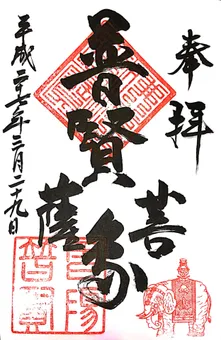 奉拝
普賢
菩薩
平成二十七年三月二十九日